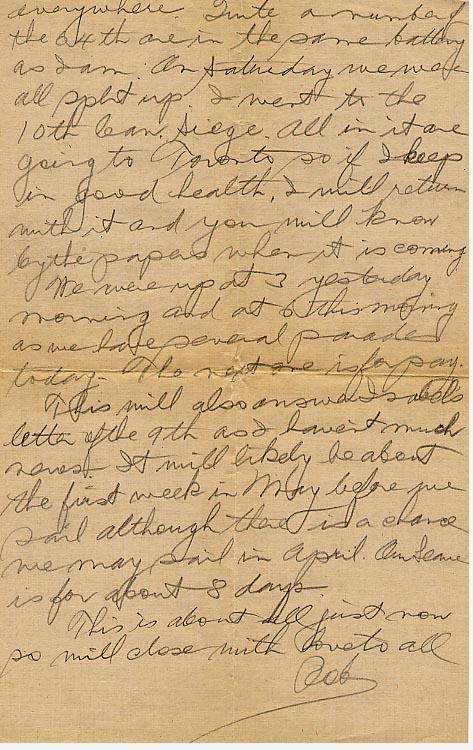 everywhere. Quite a number of
the 64th are in the same battery
as I am. On Saturday we were
all split up. I went to the
10th Can. Siege. All in it are
going to Toronto so if I keep
in good health, I will return
with it and you will know
by the papers when it is coming
We were up at 3 yesterday
morning and at 6 this morning
as we have several parades
today. The next one is for pay.
This will also answer Isabel's
letter of the 9th as I haven't much
news. It will likely be about
the first week in May before we
sail although there is a chance
we may sail in April. Our leave
is for about 8 days
This is about all just now
so will close with Love to all
Bob